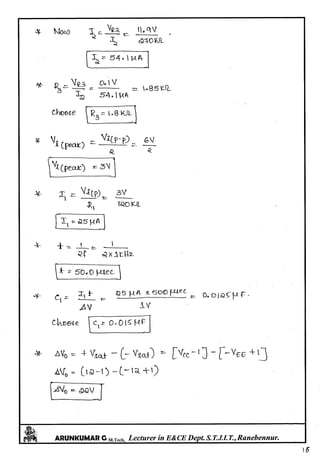 * Now I2 = VR2 / I2 = 11.9V / 270KΩ .
I2 = 54.1μA
* R3 = VR3 / I2 = 0.1V / 54.1μA = 1.85KΩ
Choose R3 = 1.8KΩ
* VI(peak) = VI(P-P) / 2 = 6V / 2
VI(peak) = 3V
* I1 = VI(P) / R1 = 3V / 120KΩ
I1 = 25μA
* t = 1 / 2f = 1 / 2x1KHz
t = 50.0μsec
* C1 = I1 t / ΔV = 25μA x 500μsec / 1V = 0.0125μF.
Choose C1 = 0.015μF
* ΔVo = + Vsat - (- Vsat) = [Vcc - 1] - [-VEE + 1]
ΔVo = (12-1) - (-12+1)
ΔVo = 22V
ARUNKUMAR G M.Tech, Lecturer in E&CE Dept. S.T.J.I.T., Ranebennur.
16